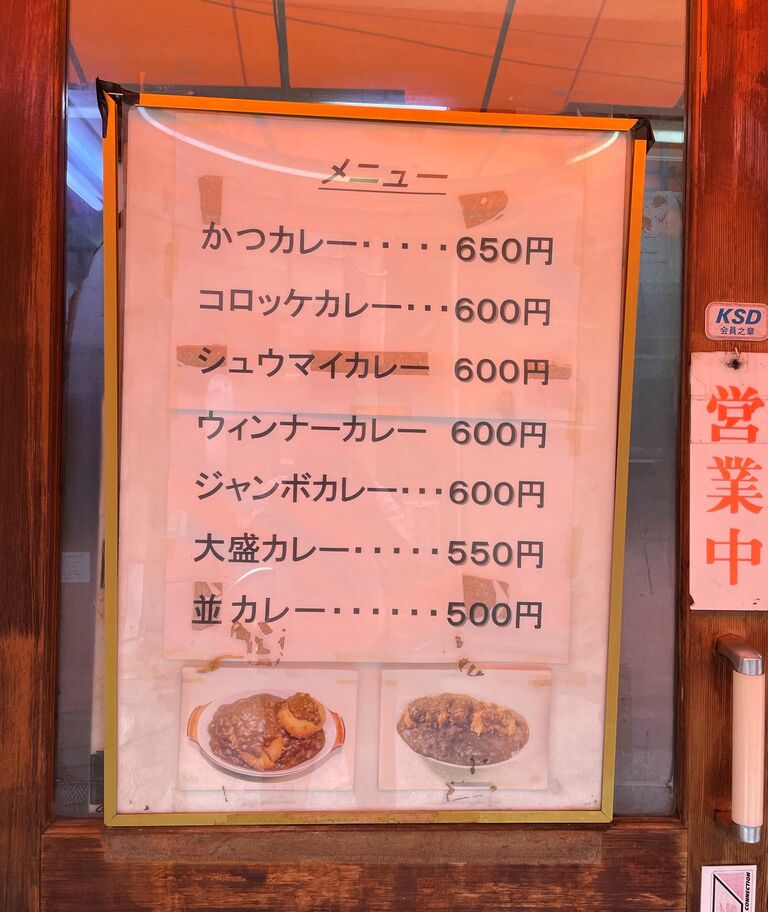 メニュー
かつカレー・・・・・650円
コロッケカレー・・・600円
シュウマイカレー 600円
ウィンナーカレー 600円
ジャンボカレー・・・600円
大盛カレー・・・・・550円
並カレー・・・・・・500円
KSD
会員之章
営業中
CONNECTION